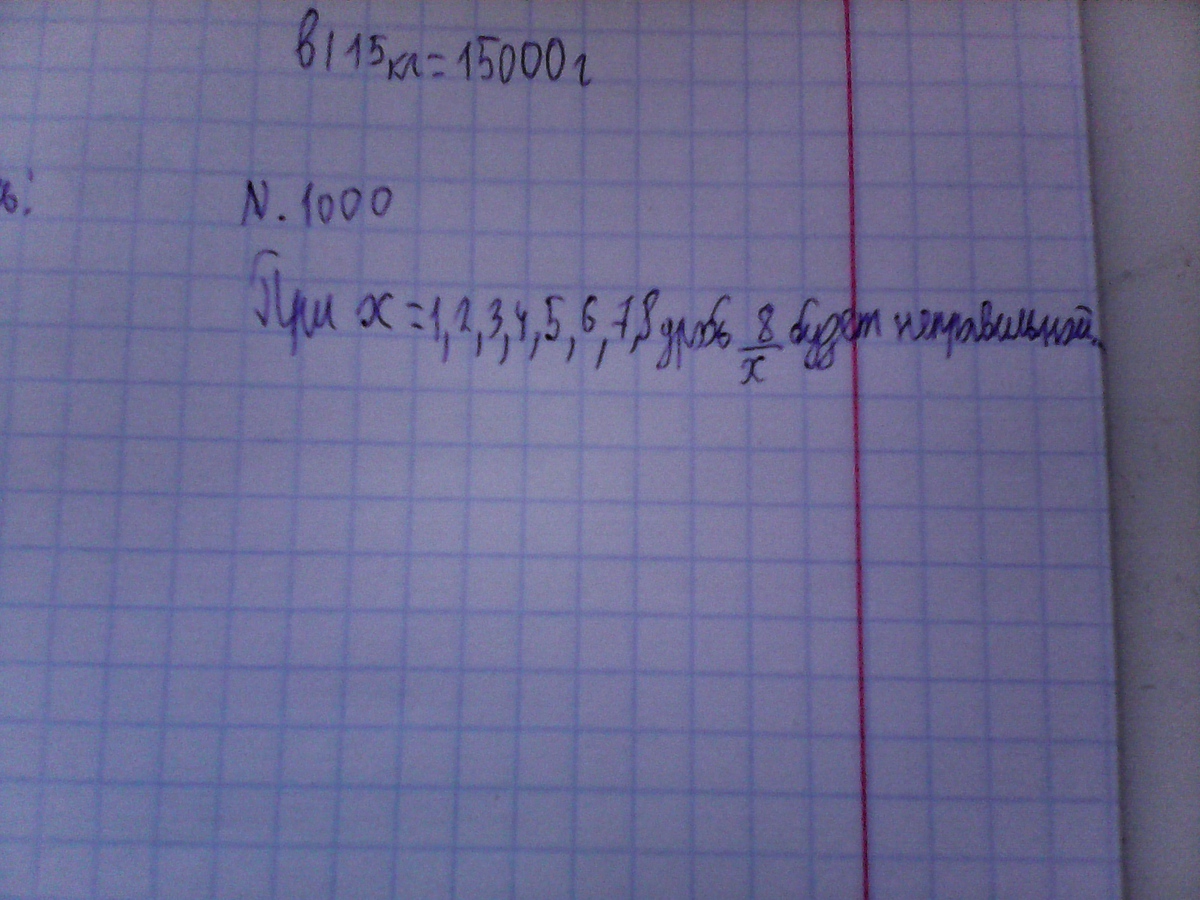 в) 15 кг = 15000 г
ь:
N. 1000
При x = 1, 2, 3, 4, 5, 6, 7, 8 дробь 8/x будет неправильной.